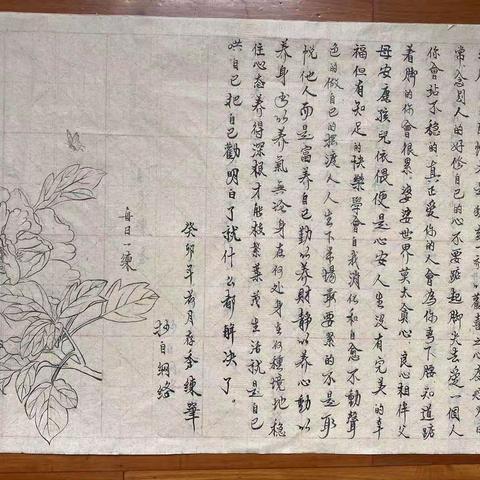 常念别人的好修自己的心不要踮起脚尖去爱一個人
你會站不稳的真正爱你的人會為你弯下腰知道踮
着脚的你會很累婆娑世界莫太貪心良心相伴父
母安康孩兒依偎便是心安人生没有完美的幸
福但有知足的快樂學會自我消化和自愈不動聲
色的做自己的摆渡人人生下半場最要累的不是取
悦他人而是富养自己勤以养財静以养心動以
养身书以养氣無论身在何处身生何種境地稳
住心态养得深根才能枝繁葉茂生活就是自己
哄自己把自己勸明白了就什么都解决了。
癸卯年 月存季練筆
抄自網络
每日一練